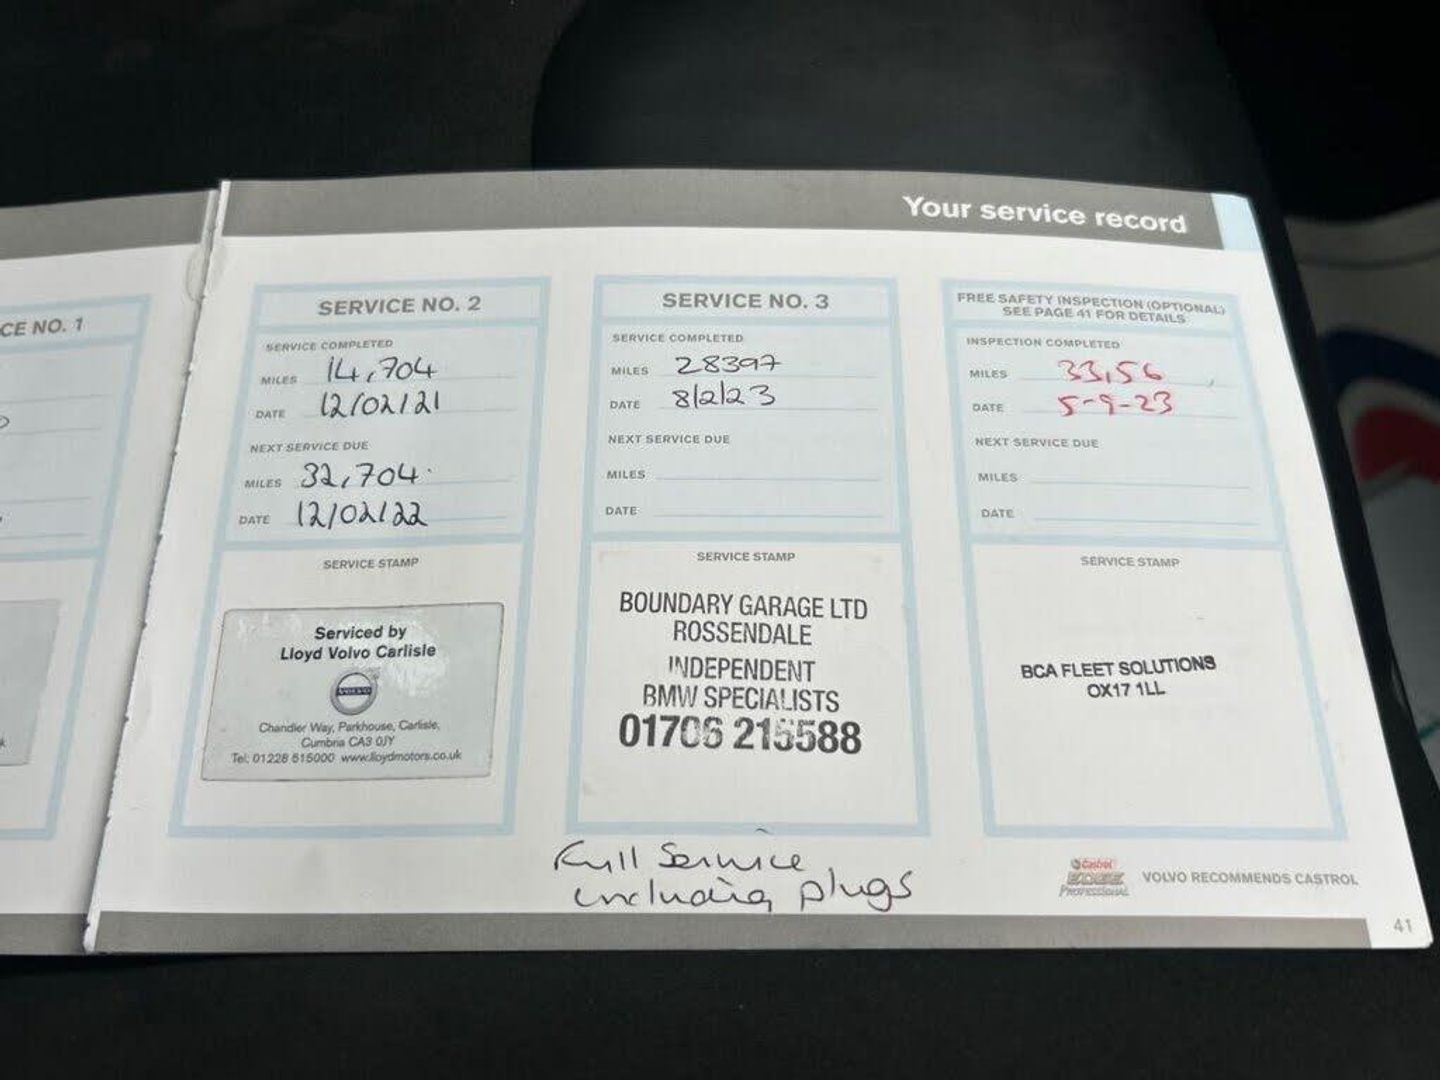 Your service record
CE NO. 1
SERVICE NO. 2
SERVICE COMPLETED
MILES 14,704
DATE 12/02/21
NEXT SERVICE DUE
MILES 32,704
DATE 12/02/22
SERVICE STAMP
Serviced by
Lloyd Volvo Carlisle
VOLVO
Chandler Way, Parkhouse, Carlisle,
Cumbria CA3 0JY
Tel: 01228 615000 www.lloydmotors.co.uk
SERVICE NO. 3
SERVICE COMPLETED
MILES 28397
DATE 8/2/23
NEXT SERVICE DUE
MILES
DATE
SERVICE STAMP
BOUNDARY GARAGE LTD
ROSSENDALE
INDEPENDENT
BMW SPECIALISTS
01706 215588
Full Service
including plugs
FREE SAFETY INSPECTION (OPTIONAL)
SEE PAGE 41 FOR DETAILS
INSPECTION COMPLETED
MILES 33,156
DATE 5-9-23
NEXT SERVICE DUE
MILES
DATE
SERVICE STAMP
BCA FLEET SOLUTIONS
OX17 1LL
Castrol
EDGE
PROFESSIONAL
VOLVO RECOMMENDS CASTROL
41